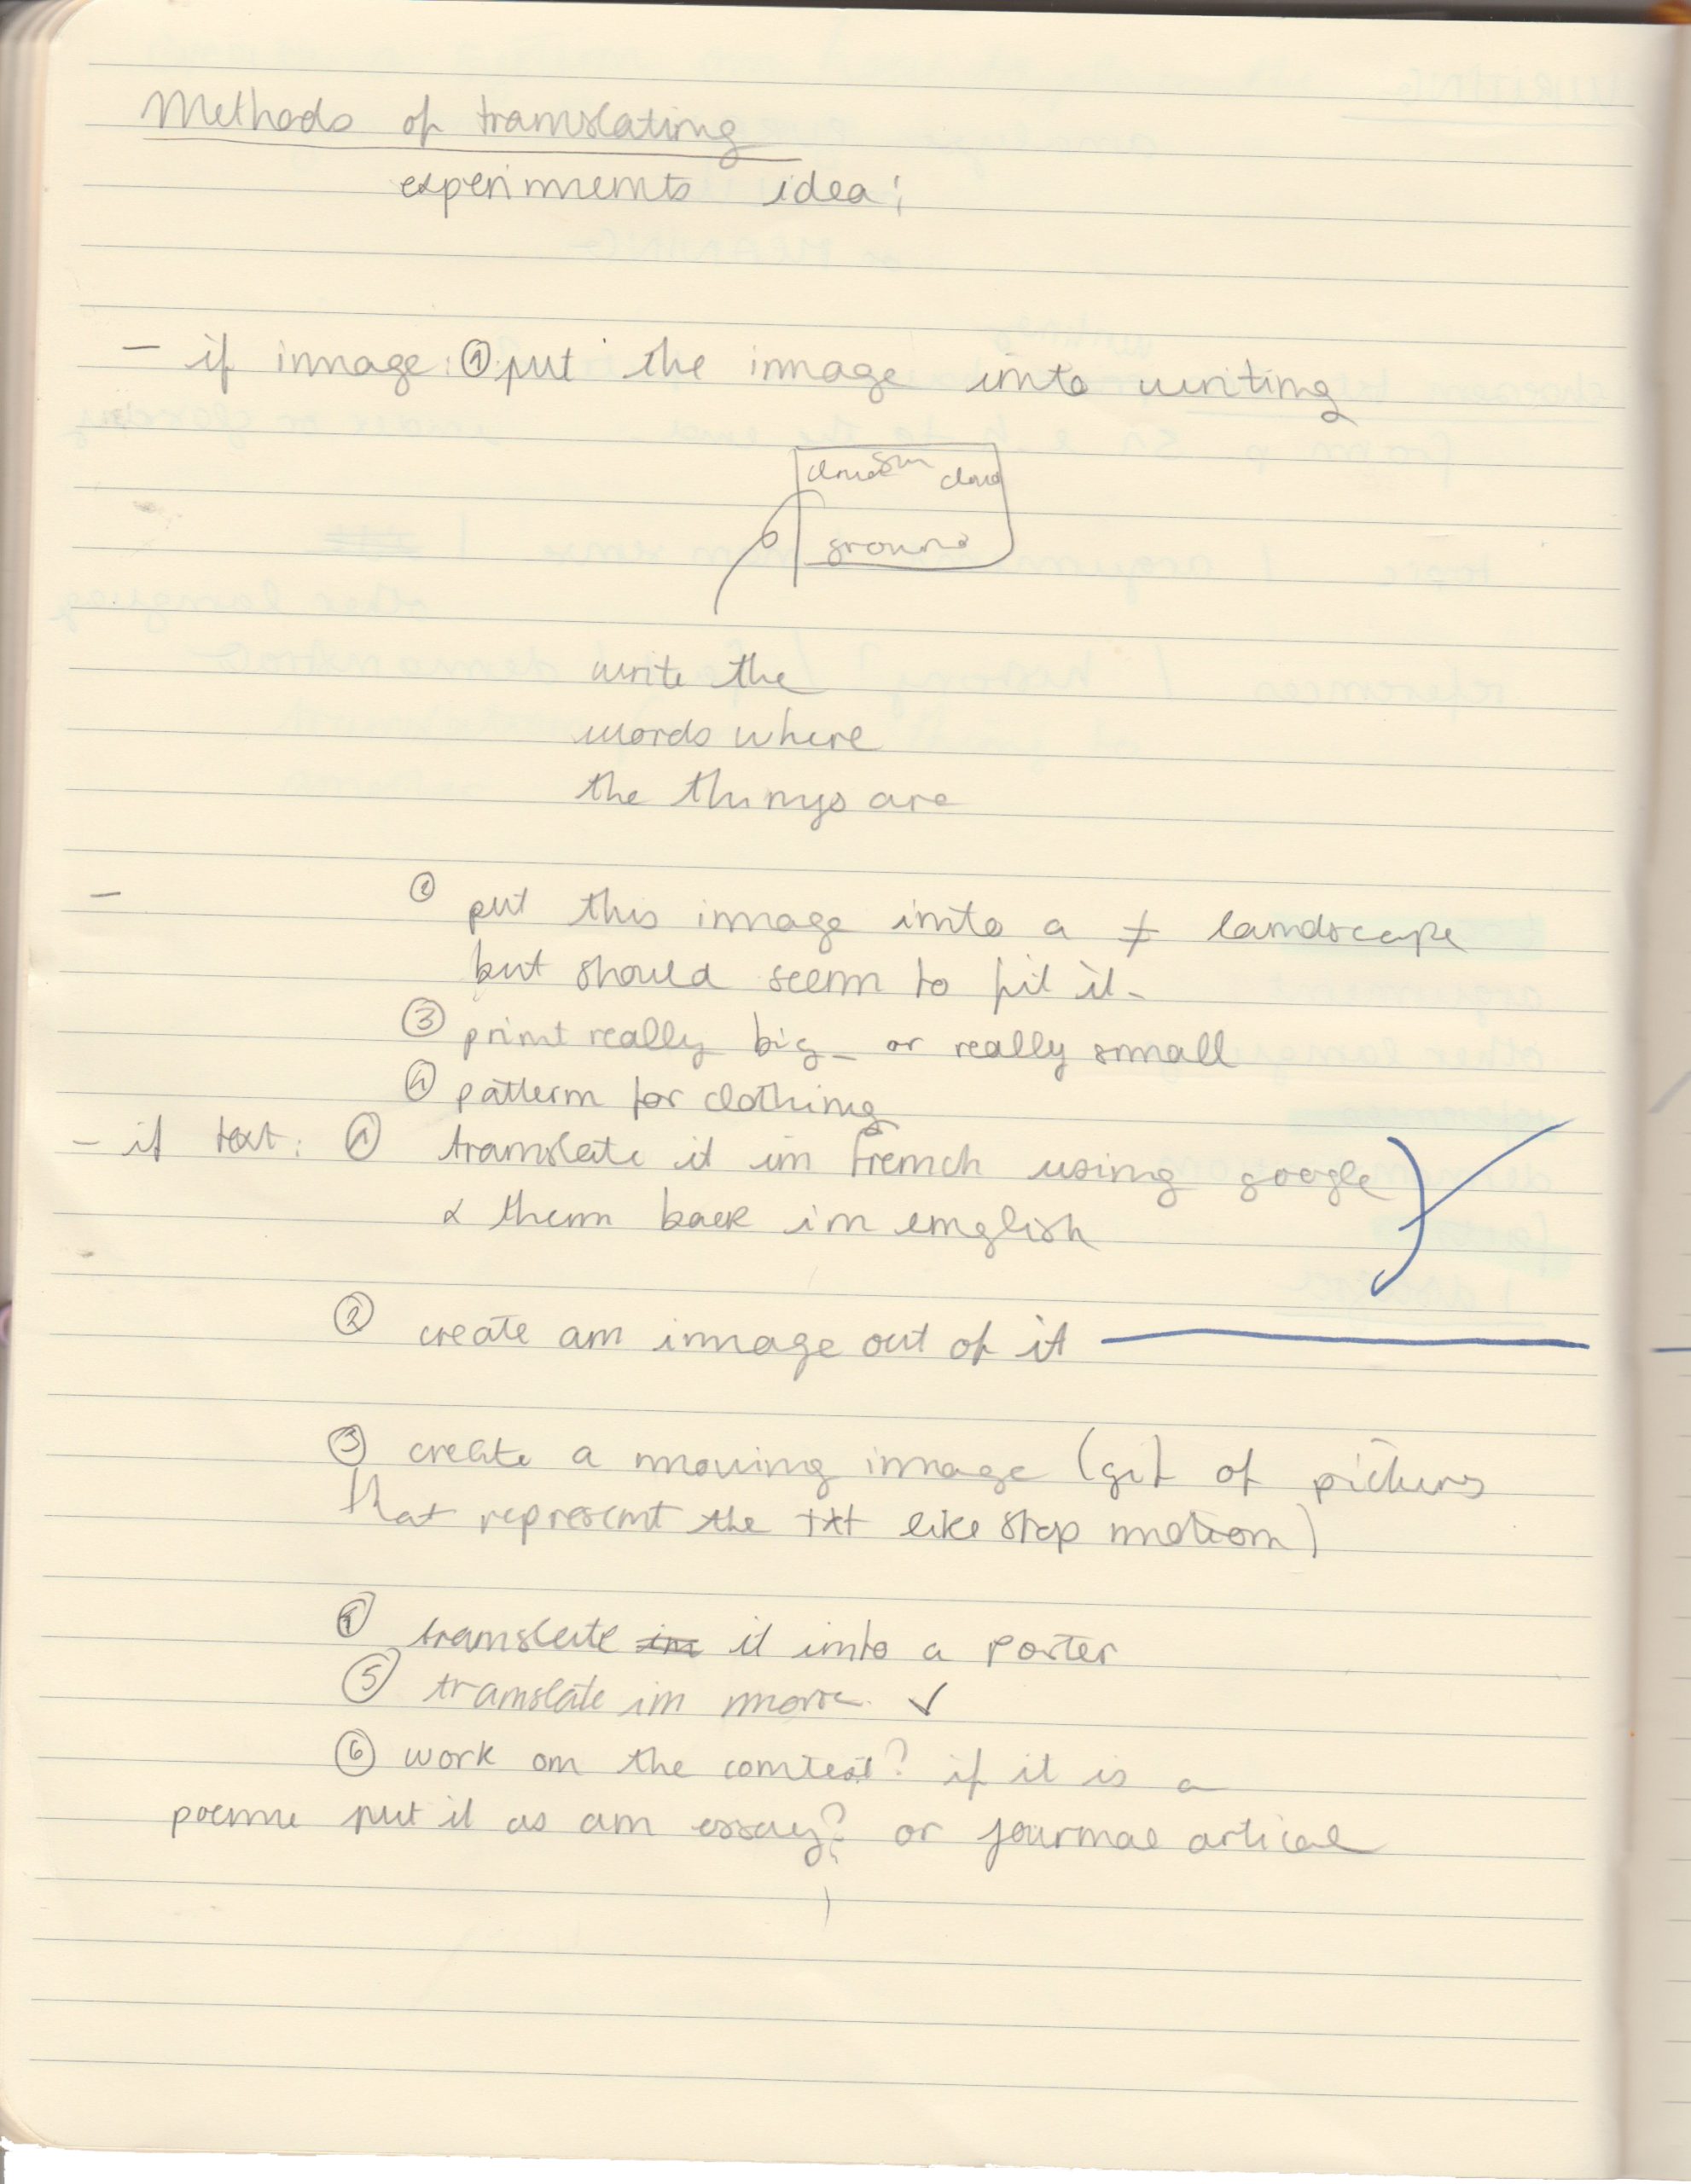 Methods of translating
experiments idea:
- if image: ① put the image into writing
cloud sun cloud
ground
write the
words where
the things are
- ② put this image into a ≠ landscape
but should seem to fit it -
③ print really big - or really small
④ pattern for clothing
- if text: ① translate it in French using google
& then back in english
② create an image out of it
③ create a moving image (gif of pictures
that represent the txt like stop motion)
④ translate in it into a poster
⑤ translate in morse ✓
⑥ work on the context? if it is a
poeme put it as an essay? or journal artical